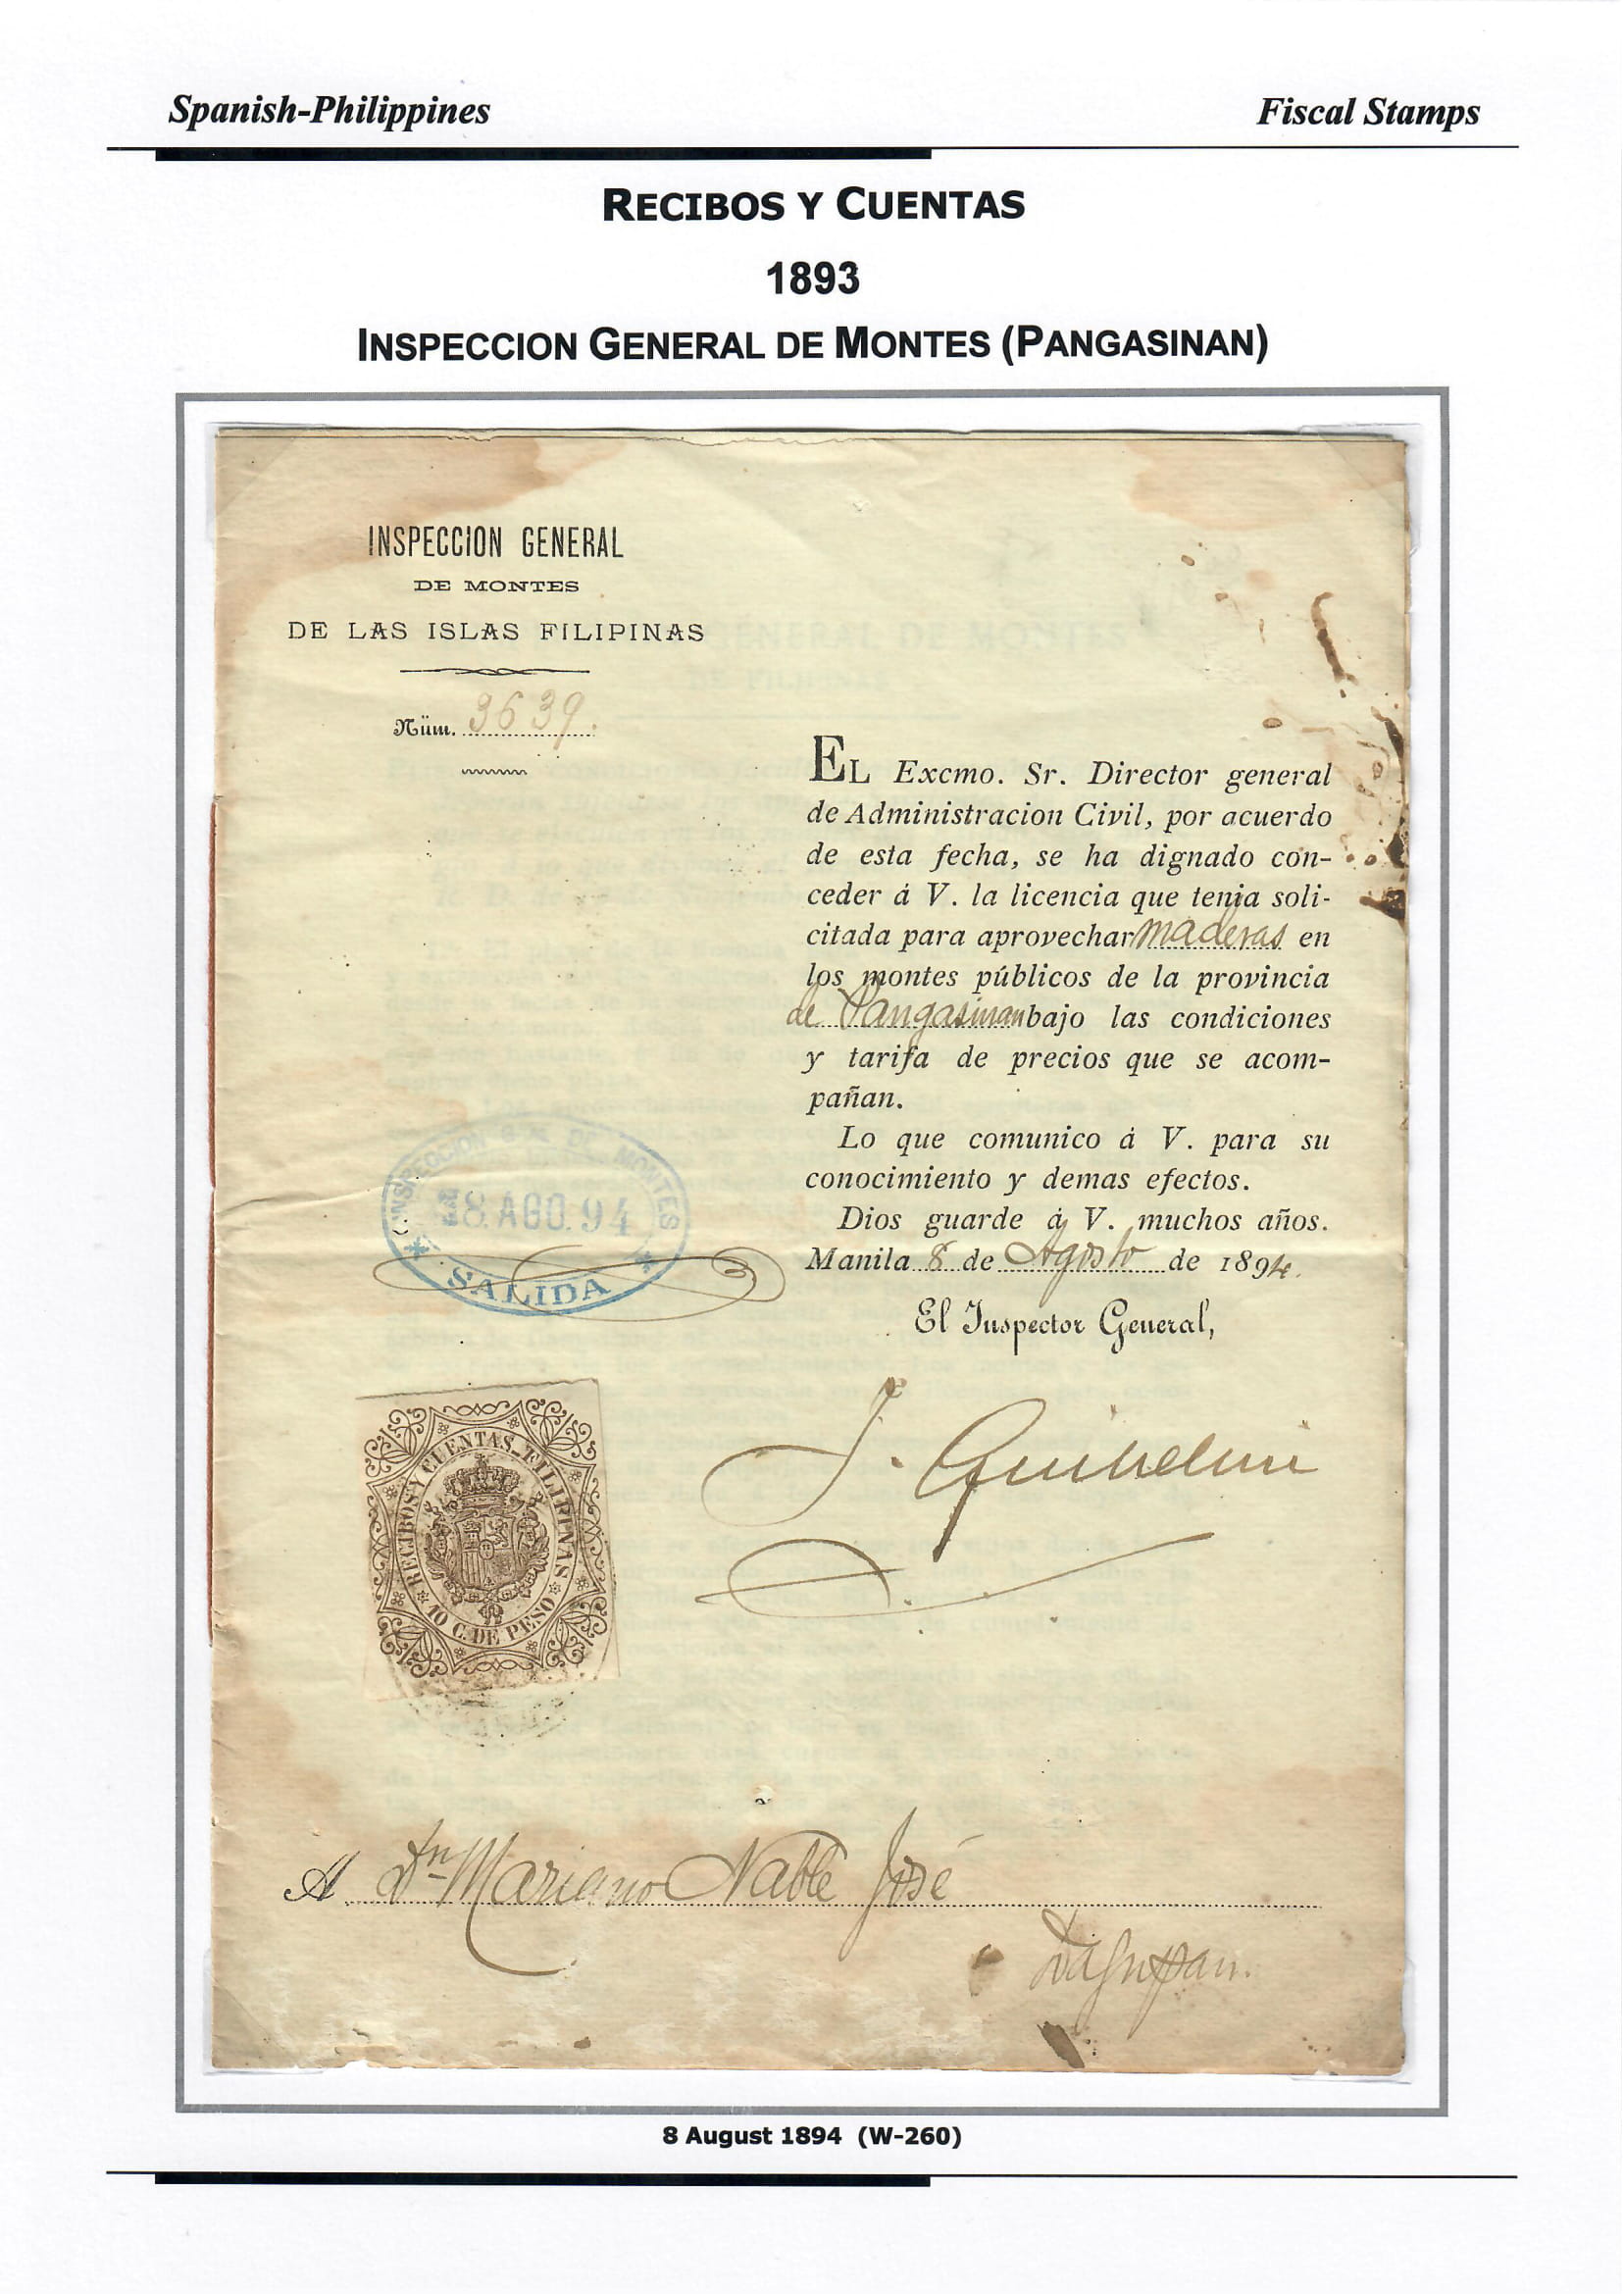 Spanish-Philippines Fiscal Stamps
RECIBOS Y CUENTAS
1893
INSPECCION GENERAL DE MONTES (PANGASINAN)
INSPECCION GENERAL
DE MONTES
DE LAS ISLAS FILIPINAS
Núm. 3639.
EL Excmo. Sr. Director general
de Administracion Civil, por acuerdo
de esta fecha, se ha dignado con-
ceder á V. la licencia que tenia soli-
citada para aprovechar maderas en
los montes públicos de la provincia
de Pangasinan bajo las condiciones
y tarifa de precios que se acom-
pañan.
Lo que comunico á V. para su
conocimiento y demas efectos.
Dios guarde á V. muchos años.
Manila 8 de Agosto de 1894.
El Inspector General,
INSPECCION GRAL DE MONTES
8 AGO. 94
SALIDA
RECIBOS Y CUENTAS_FILIPINAS
10 C. DE PESO
A Dn Mariano Nable José
Dagupan.
8 August 1894 (W-260)